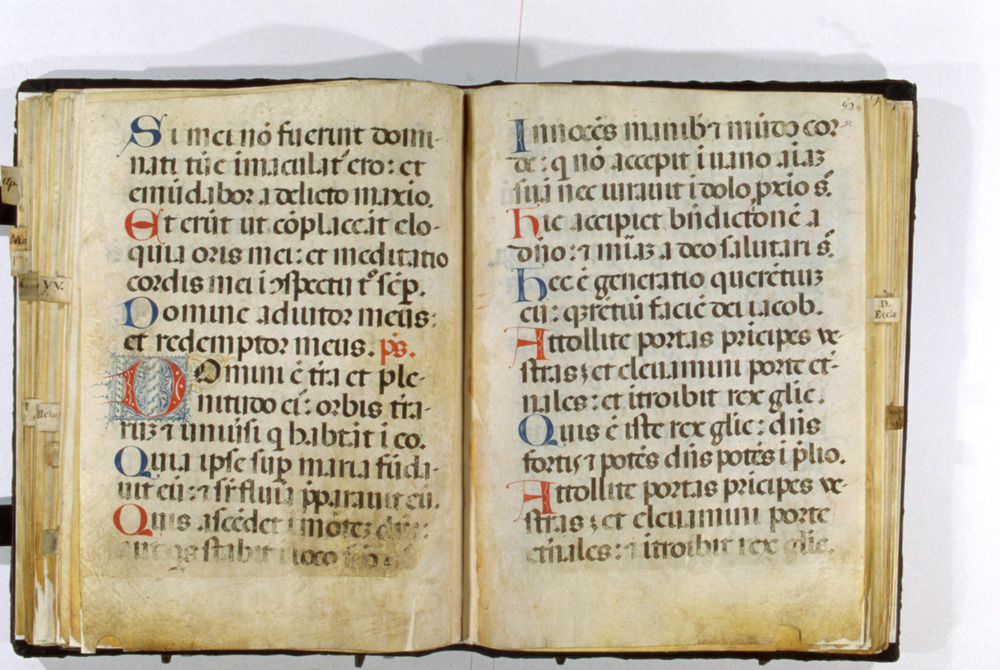 Si mei nō fuerint domi-
nati tūc imaculat᷒ ero: et
emūdabor a delicto maxio.
Et erūt ut cōplaceāt elo-
quia oris mei: et meditatio
cordis mei i ɔspectu t᷒ sēp.
Domine adiutor meus:
et redemptor meus. ps.
Domini ē t̄ra et ple-
nitudo ei᷒: orbis t̄ra-
ruꝫ ⁊ uniūsi q habitāt i eo.
Quia ipse sup maria fūda-
uit eū: ⁊ sr̄ flumīa p̄parauit eū.
Quis ascēdet i mōteꝫ
aut q̄s stabit i loco
Innocēs manibꝫ ⁊ mūdo cor-
de: q nō accepit i uano aīaꝫ
suā nec iurauit i dolo ꝓxīo s᷒.
Hic accipiet bn̄dictōnē a
dn̄o: ⁊ mīaꝫ a deo salutari s᷒.
Hec ē generatio querētiuꝫ
eū: q̄rētiū faciē dei iacob.
Attollite portas prīcipes ve-
stras ꝫ et eleuamini porte et̄-
nales: et ītroibit rex glīe.
Quis ē iste rex glīe: dn̄s
fortis ⁊ potēs dn̄s potēs i p̄lio.
Attollite portas prīcipes ve-
stras ꝫ et eleuamini porte
et̄nales: ⁊ ītroibit rex glīe.
yv.
D.
Eccla